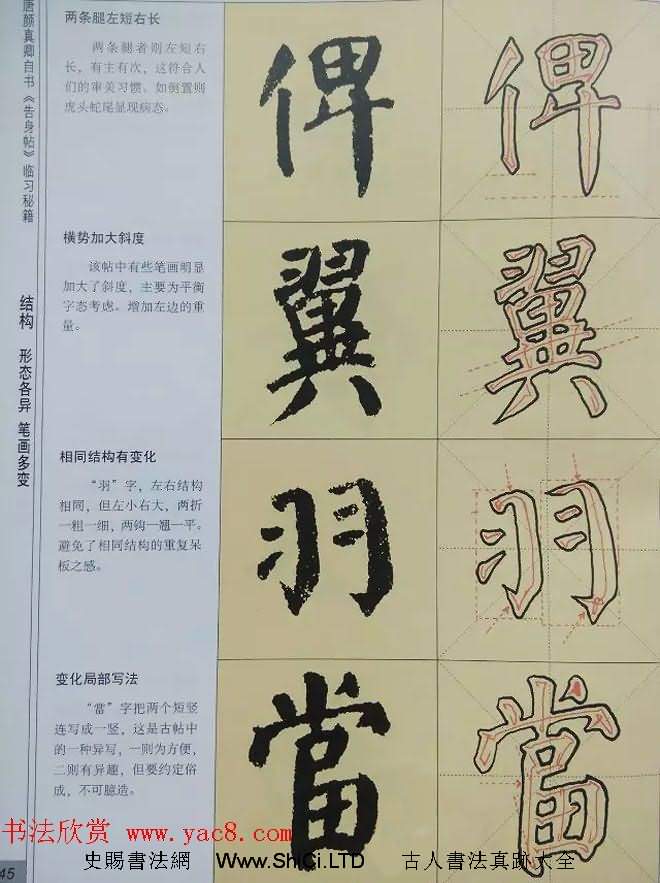 唐颜真卿自书《告身帖》临习秘籍
结构 形态各异 笔画多变
两条腿左短右长
两条腿者则左短右
长，有主有次，这符合人
们的审美习惯。如倒置则
虎头蛇尾显现病态。
俾
横势加大斜度
该帖中有些笔画明显
加大了斜度，主要为平衡
字态考虑。增加左边的重
量。
翼
相同结构有变化
“羽”字，左右结构
相同，但左小右大，两折
一粗一细，两钩一翘一平。
避免了相同结构的重复呆
板之感。
羽
变化局部写法
“當”字把两个短竖
连写成一竖，这是古帖中
的一种异写，一则为方便，
二则有异趣，但要约定俗
成，不可臆造。
當
书法欣赏 www.yac8.com
45
史賜書法網 Www.ShiCi.LTD 古人書法真跡大全